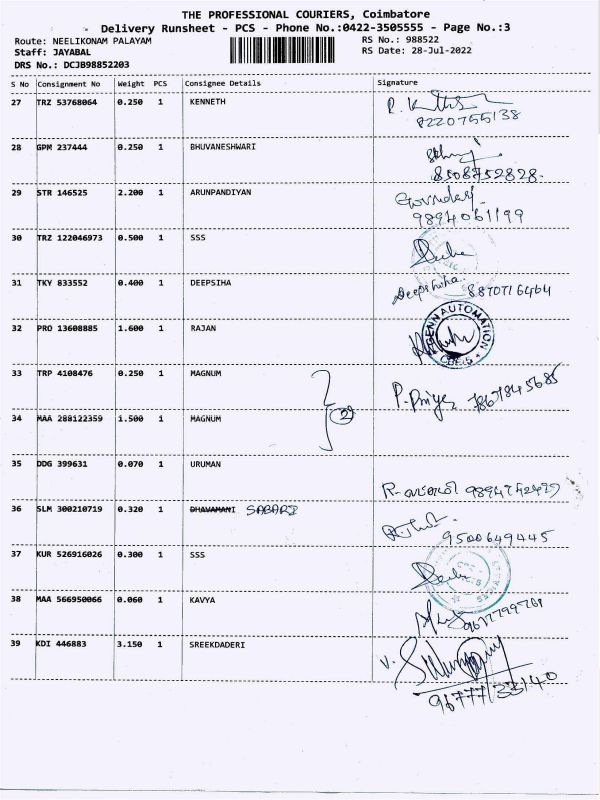 THE PROFESSIONAL COURIERS, Coimbatore
Delivery Runsheet - PCS - Phone No.:0422-3505555 - Page No.:3
Route: NEELIKONAM PALAYAM RS No.: 988522
Staff: JAYABAL RS Date: 28-Jul-2022
DRS No.: DCJB98852203
S No Consignment No Weight PCS Consignee Details Signature
27 TRZ 53768064 0.250 1 KENNETH
8220755138
28 GPM 237444 0.250 1 BHUVANESHWARI
8508752828
29 STR 146525 2.200 1 ARUNPANDIYAN Govindaraj
9894061199
30 TRZ 122046973 0.500 1 SSS
31 TKY 833552 0.400 1 DEEPSIHA Deepshiha. 8870716464
32 PRO 13608885 1.600 1 RAJAN
GENN AUTOMATION
33 TRP 4108476 0.250 1 MAGNUM
P. Priya 7867845685
2
34 MAA 288122359 1.500 1 MAGNUM
35 DDG 399631 0.070 1 URUMAN
36 SLM 300210719 0.320 1 DHAVAMANI SABARI
9500649445
37 KUR 526916026 0.300 1 SSS
38 MAA 566950066 0.060 1 KAVYA
39 KDI 446883 3.150 1 SREEKDADERI
9677733140